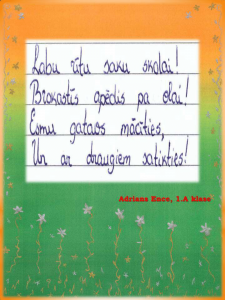 Labu rītu saku skolai!
Brokastīs apēdis pa olai!
Esmu gatavs mācīties,
Un ar draugiem satikties!
Adrians Ence, 1.A klase